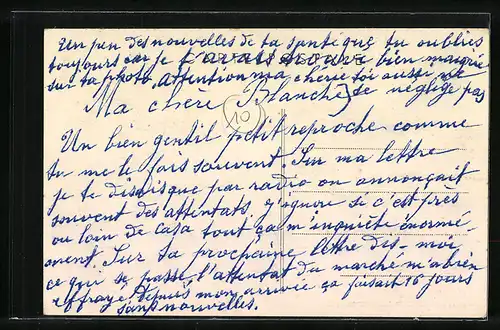 Un peu des nouvelles de ta santé que tu oublies
toujours car je t'avais trouvée bien maigrie
sur ta photo. Attention ma cherie toi aussi ne
te néglige pas
Ma chère Blanche
10
Un bien gentil petit reproche comme
tu me le fais souvent. Sur ma lettre
je te disais que par radio on annonçait
souvent des attentats, j'ignore si c'est près
ou loin de Casa tout ça m'inquiète énormé-
ment. Sur ta prochaine lettre dis-moi
ce qui se passe, l'attentat du marché m'a bien
effrayé. Depuis mon arrivée ça faisait 16 jours
sans nouvelles.